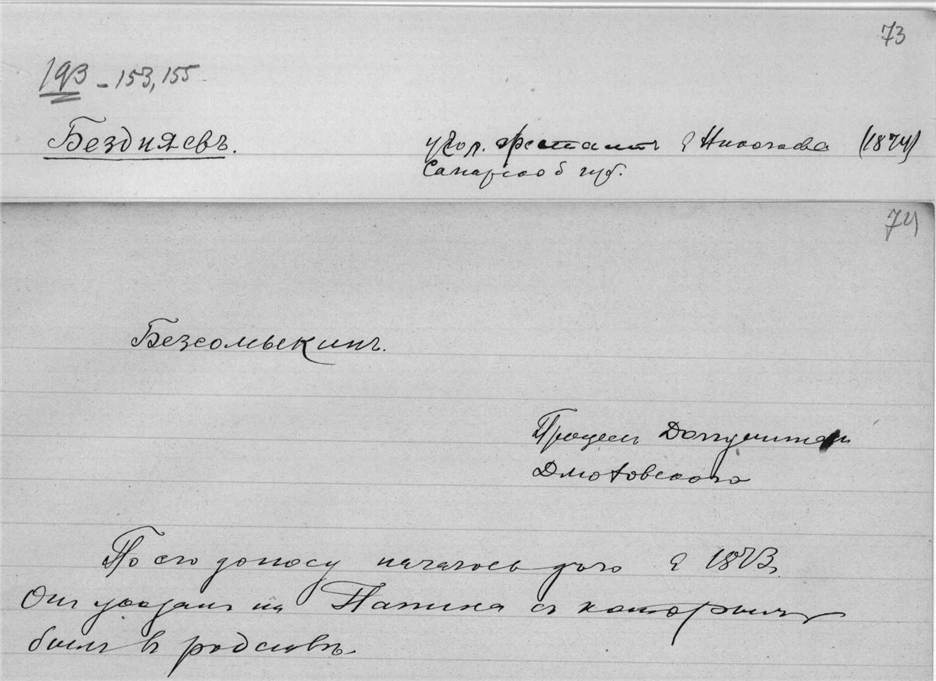 73
193 - 153, 155
Бездняевъ.
угол. арестантъ г Николаева (1874)
Самарской губ.
74
Безсомыкинъ.
Процессъ Долгушина
Дмоховского
По его доносу началось дѣло 1873.
Онъ указалъ на Папина съ которымъ
былъ в родствѣ